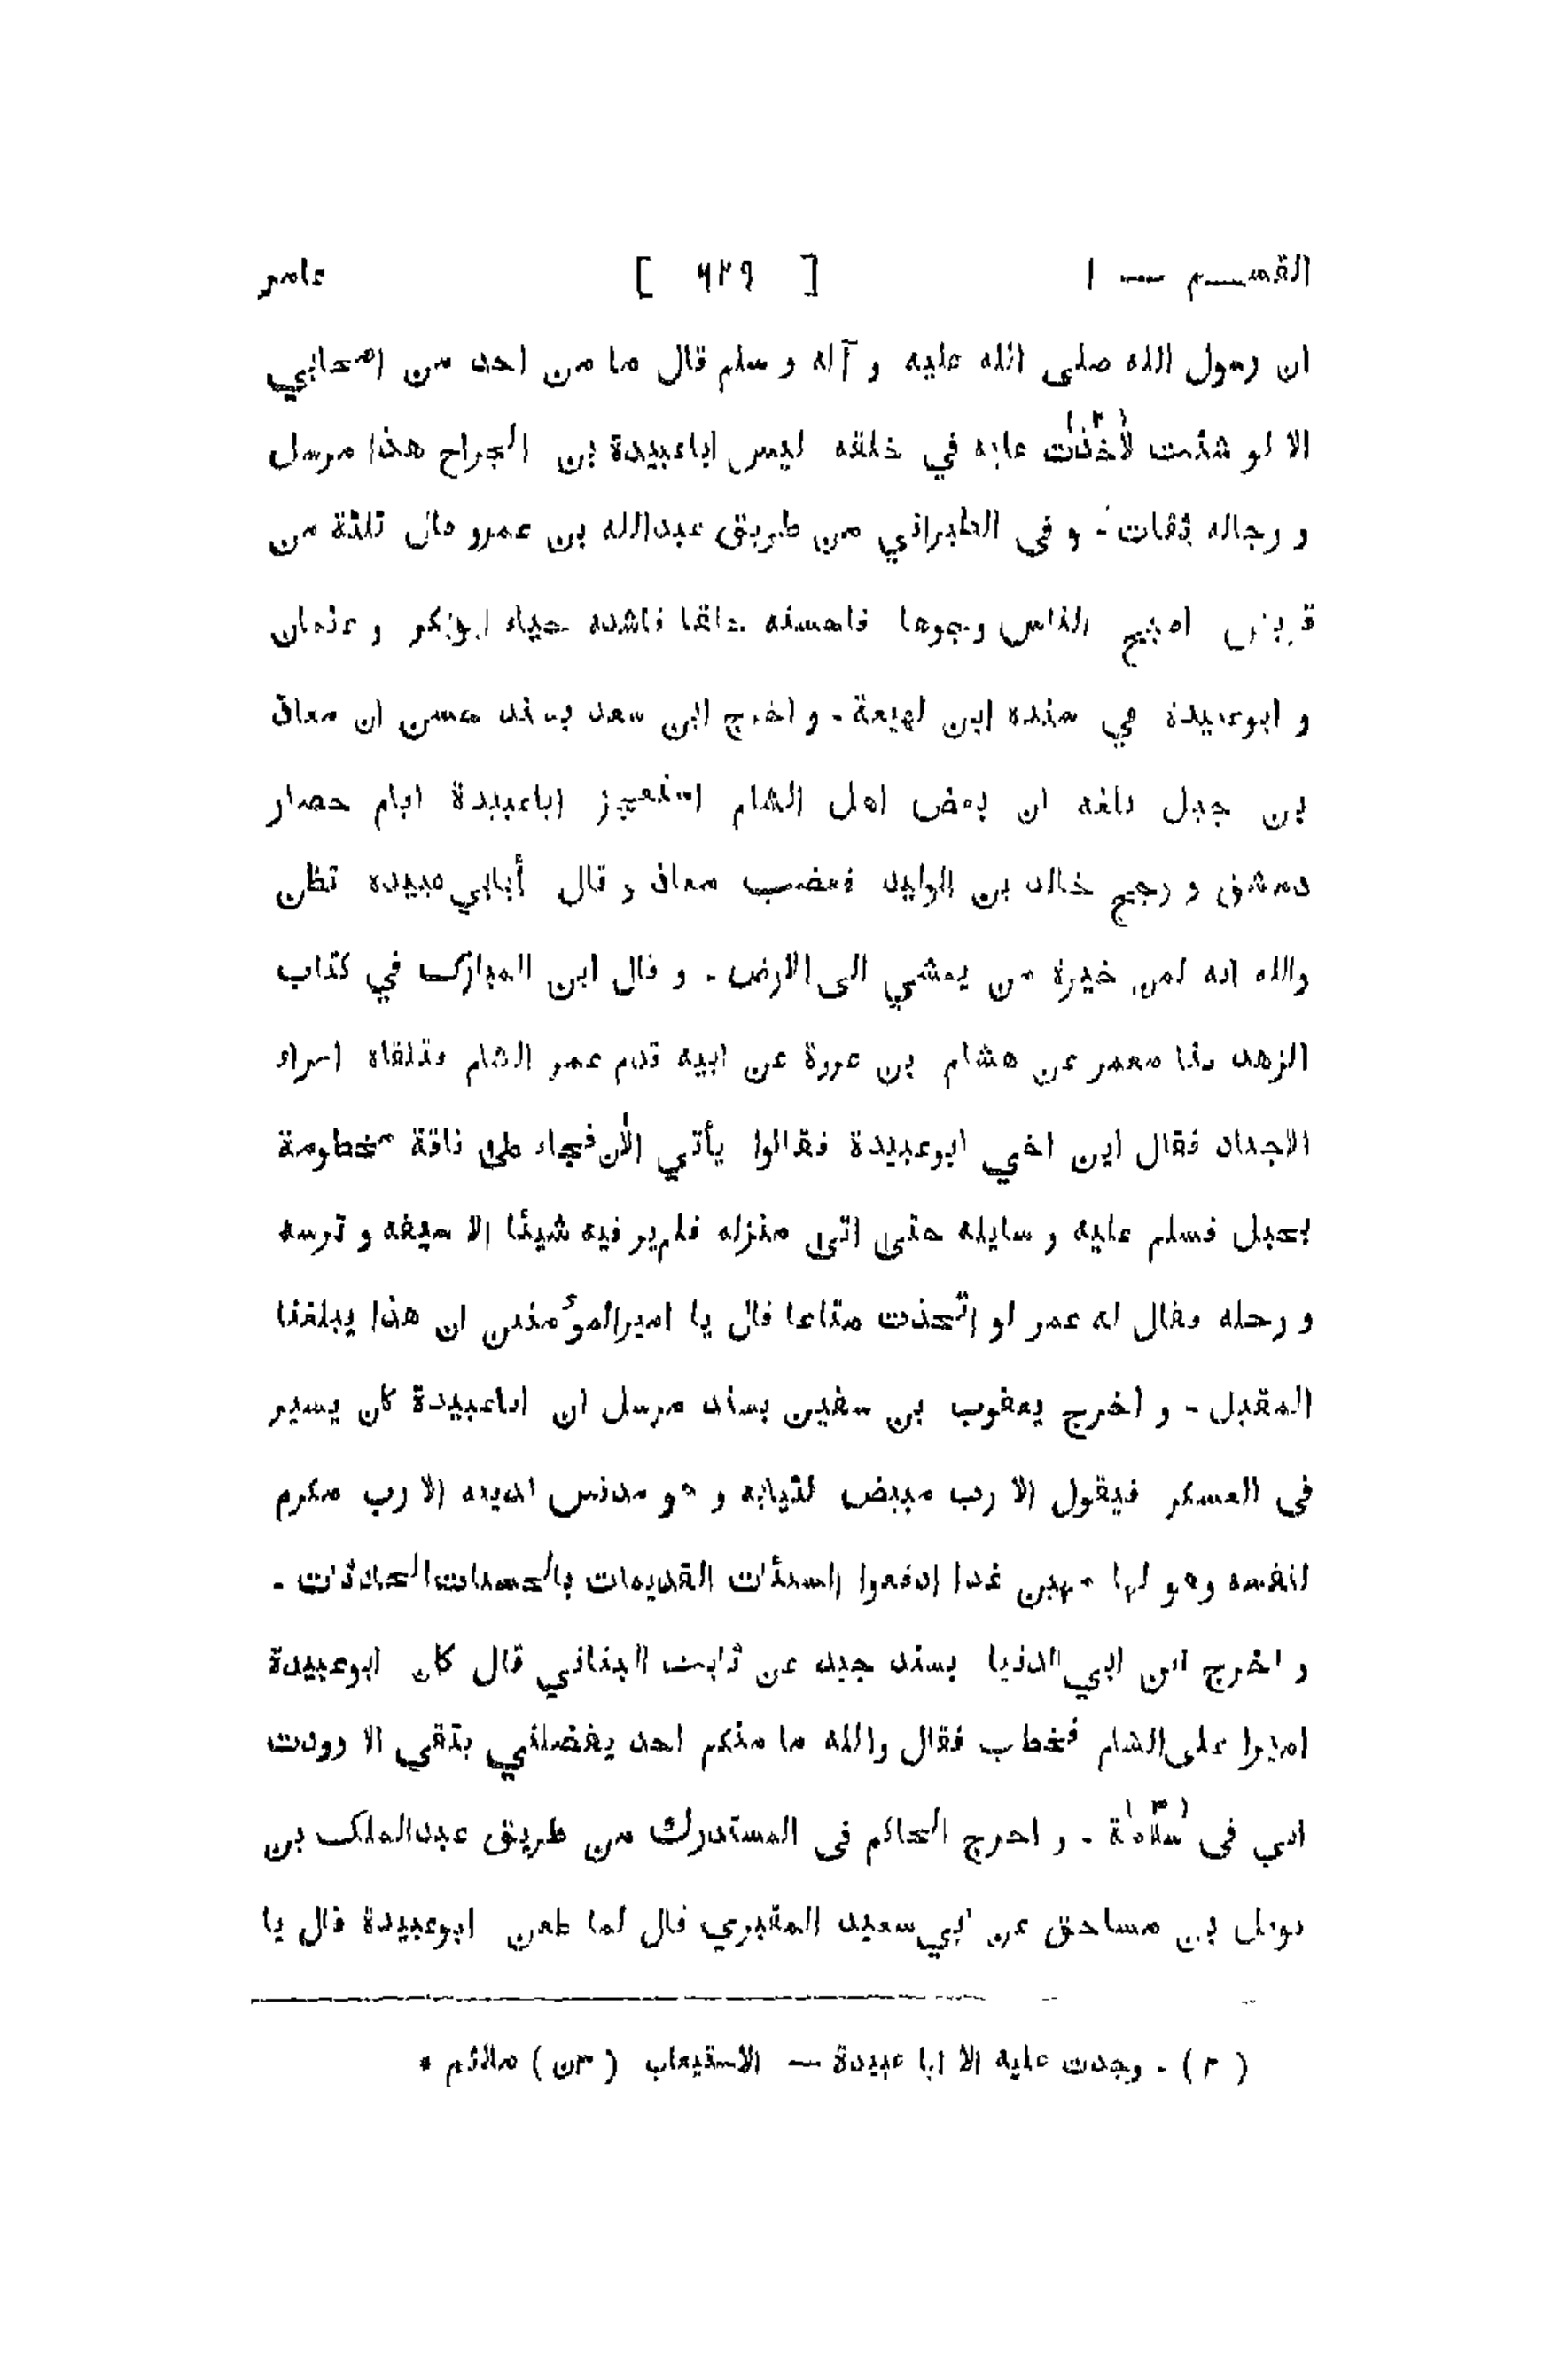 القسم — ١ [ ٦٢٩ ] عامر
ان رسول الله صلى الله عليه و آله و سلم قال ما من احد من اصحابي
الا لو شئت لأخذت عليه في خلقه ليس اباعبيدة بن الجراح هذا مرسل
و رجاله ثقات - و فى الطبراني من طريق عبدالله بن عمرو قال ثلثة من
قريش اصبح الناس وجوها فاحسنه خلقا فاشده حياء ابوبكر و عثمان
و ابوعبيدة في سنده ابن لهيعة - و اخرج ابن سعد بسند حسن ان معاذ
بن جبل بلغه ان بعض اهل الشام استعجز اباعبيدة ايام حصار
دمشق و رجح خالد بن الوليد فغضب معاذ و قال أبابي عبيدة تظن
والله انه لمن خيرة من يمشي الى الارض - و قال ابن المبارك في كتاب
الزهد ثنا معمر عن هشام بن عروة عن ابيه قدم عمر الشام فتلقاه امراء
الاجداد فقال اين اخي ابوعبيدة فقالوا يأتي الأن فجاء على ناقة مخطومة
بحبل فسلم عليه و سايله حتى اتى منزله فلم ير فيه شيئا الا سيفه و ترسه
و رحله فقال له عمر لو اتخذت متاعا قال يا اميرالمؤمنين ان هذا يبلغنا
المقبل - و اخرج يعقوب بن سفين بسند مرسل ان اباعبيدة كان يسير
فى العسكر فيقول الا رب مبيض لثيابه و هو مدنس لدينه الا رب مكرم
لنفسه وهو لها مهين غدا ادفعوا السيئات القديمات بالحسنات الحادثات -
و اخرج ابن ابي الدنيا بسند جيد عن ثابت البناني قال كان ابوعبيدة
اميرا على الشام فخطب فقال والله ما منكم احد يفضلني بتقى الا وودت
اني فى سلامة (٣) - و اخرج الحاكم فى المستدرك من طريق عبدالملك بن
نوفل بن مساحق عن ابي سعيد المقبري قال لما طعن ابوعبيدة قال يا
( ٢ ) - وجدت عليه الا ابا عبيدة — الاستيعاب ( ٣ن ) ملائم *